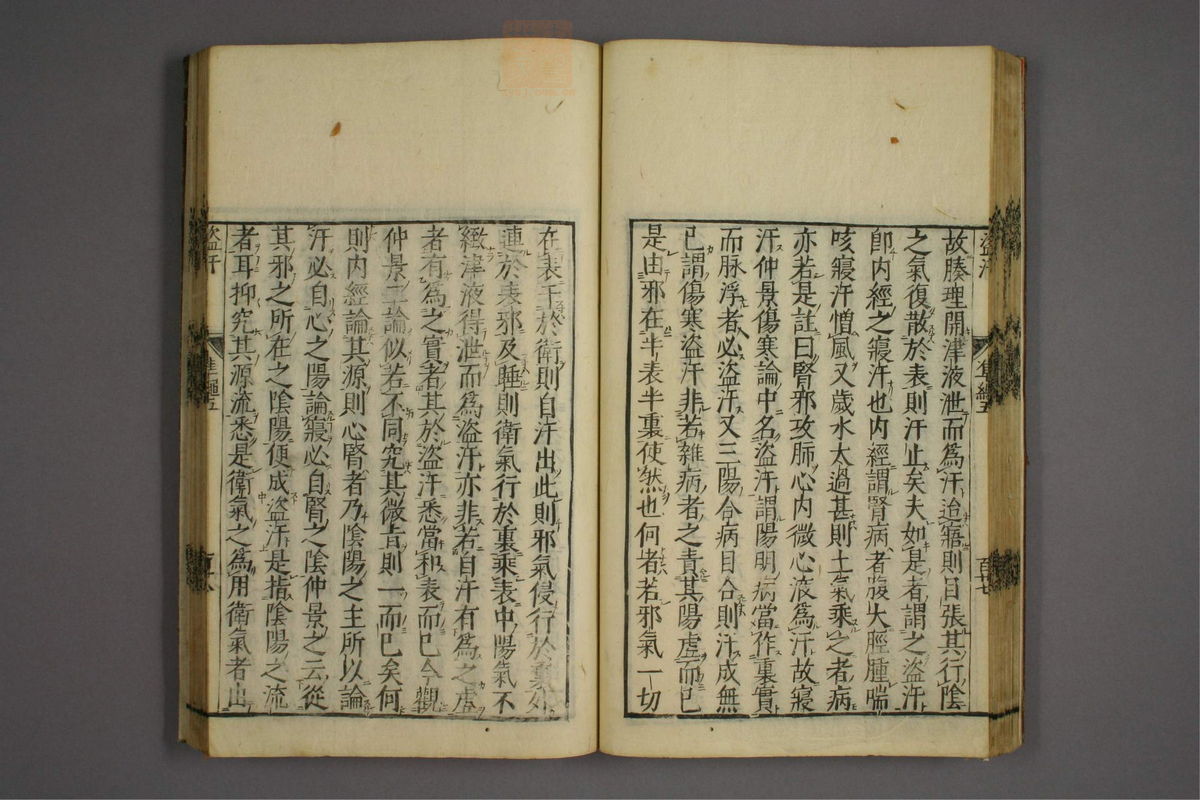 盜汗
準繩五
百廿七
故腠理開津液泄而為汗迨寤則目張其行陰
之氣復散於表則汗止矣夫如是者謂之盜汗
卽内經之寢汗也内經謂腎病者腹大脛腫喘
咳寢汗憎風又歲水太過甚則土氣乘之者病
亦若是註曰腎邪攻肺心内微心液為汗故寢
汗仲景傷寒論中名盜汗謂陽明病當作裏實
而脉浮者必盜汗又三陽合病目合則汗成無
已謂傷寒盜汗非若雜病者之責其陽虛而已
是由邪在半表半裏使然也何者若邪氣一切
在表干於衛則自汗出此則邪氣侵行於裏外
連於表邪及睡則衛氣行於裏乘表中陽氣不
緻津液得泄而為盜汗亦非若自汗有為之虛
者有為之實者其於盜汗悉當和表而已今觀
仲景二論似若不同究其微旨則一而已矣何
則内經論其源則心腎者乃陰陽之主所以論
汗必自心之陽論寢必自腎之陰仲景之云從
其邪之所在之陰陽便成盜汗是指陰陽之流
者耳抑究其源流悉是衛氣之為用衛氣者出
盜汗
準繩五
百廿八